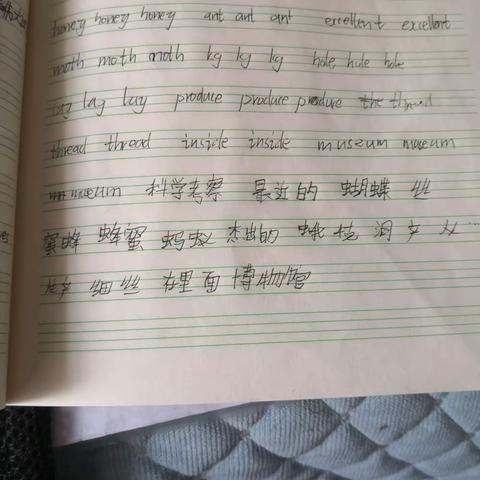 honey honey honey ant ant ant excellent excellent
moth moth moth kg kg kg hole hole hole
lay lay produce produce produce the thread
thread thread inside inside museum museum
museum 科学考察 最近的 蝴蝶 丝
蜜蜂 蜂蜜 蚂蚁 杰出的 蛾 洞 产
生产 细丝 在里面 博物馆